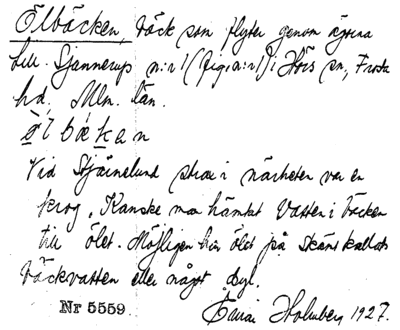 Ölbäcken, bäck som flyter genom ägorna
till Sjannerup n:r 1 (fig. a:r 1) i Hörs sn, Frosta
hd, Mlm. län.
ö̀l bækan
Vid Stjärnelund strax i närheten var en
krog. Kanske man hämtat vatten i bäcken
till ölet. Möjligen har ölet på skånskallats
bäckvatten eller något dyl.
Nr 5559
Holmberg 1927.